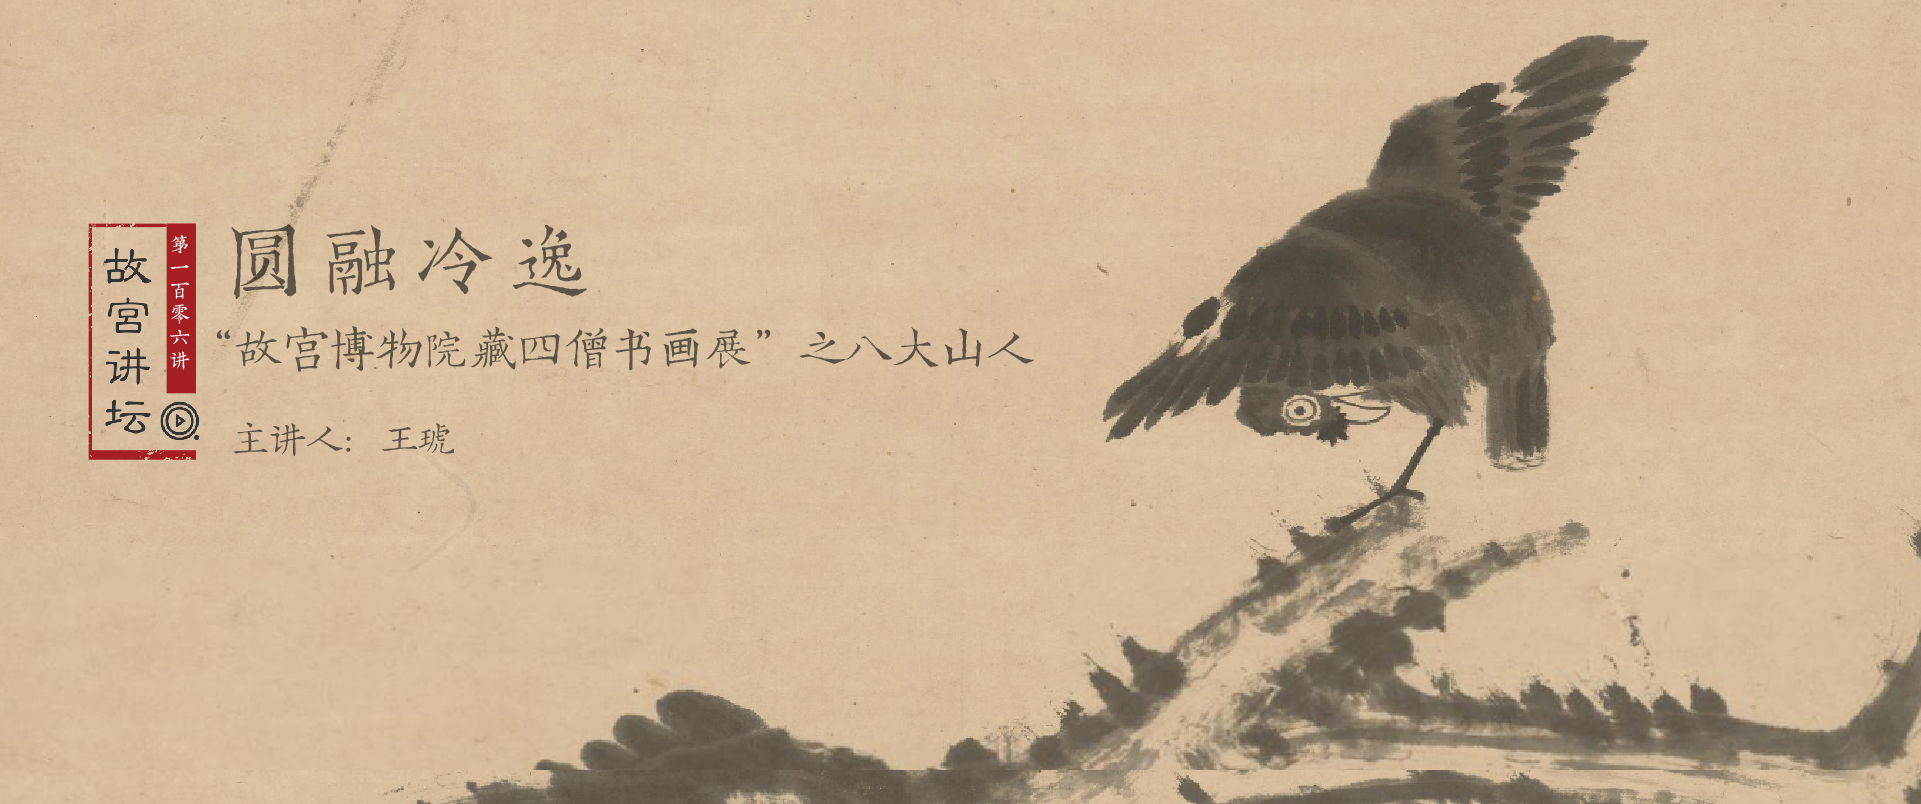 故宫讲坛
第一百零六讲
圆融冷逸
“故宫博物院藏四僧书画展”之八大山人
主讲人: 王琥